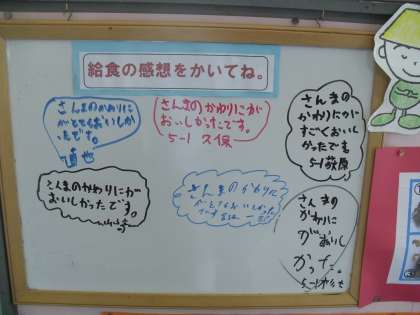 給食の感想をかいてね。
さんまのかわりに
がとてもおいしか
ったです。
直也
さんまのかわりにが
おいしかったです。
5-1 久保
さんまの
かわりにが
すごくおいし
かったです
5-1 萩原
さんまのかわりにが
おいしかったです。
さんまのかわりに
がとてもおいしかった
です
さんまの
かわりに
がおいし
かった。
5-1